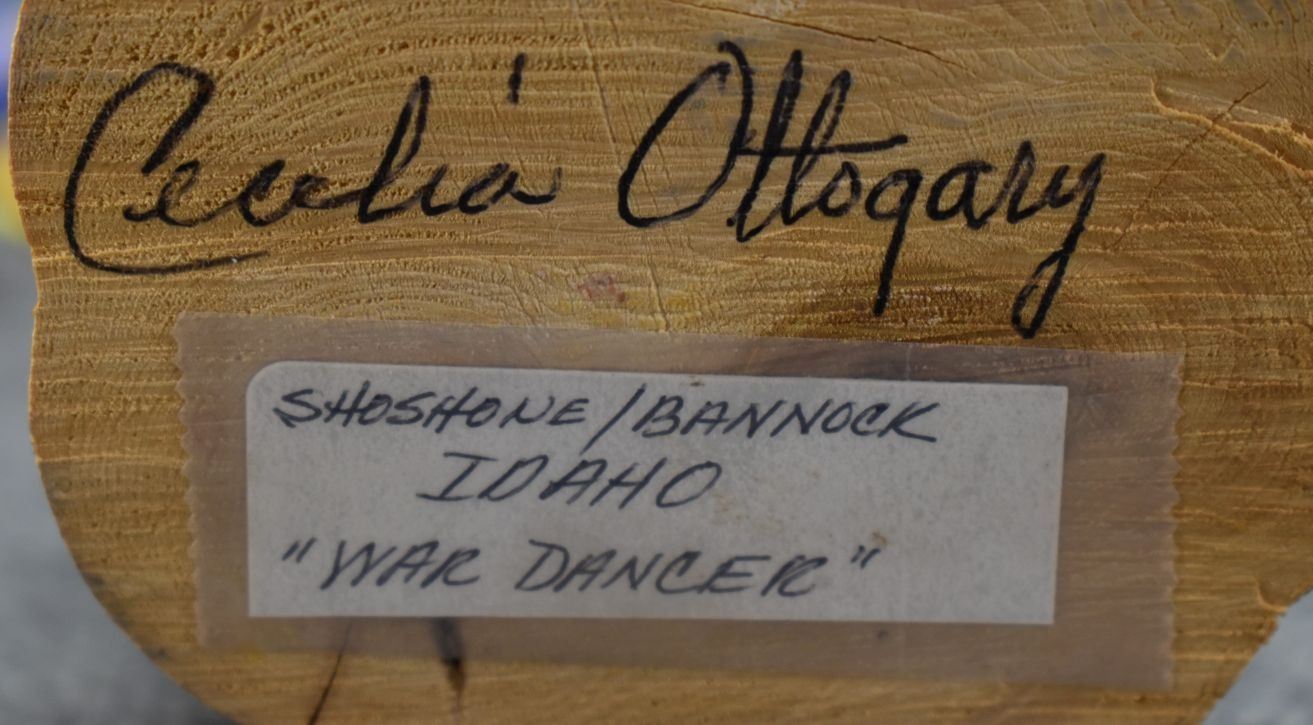 Cecelia Ottogary
SHOSHONE/BANNOCK
IDAHO
"WAR DANCER"